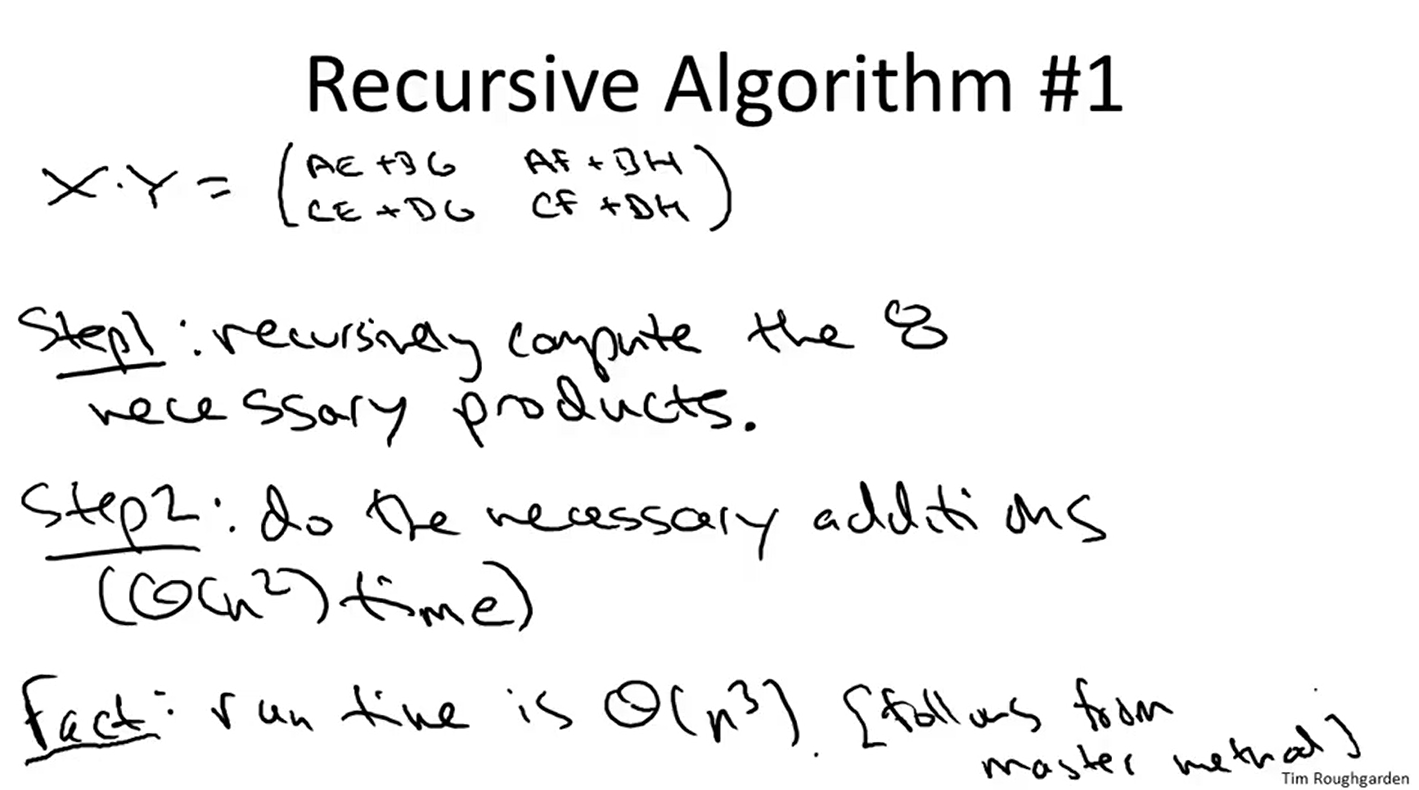 Recursive Algorithm #1
X·Y = ( AE + BG AF + BH
CE + DG CF + DH )
Step1: recursively compute the 8
necessary products.
Step2: do the necessary additions
(Θ(n²) time)
Fact: run time is Θ(n³). [follows from
master method]
Tim Roughgarden